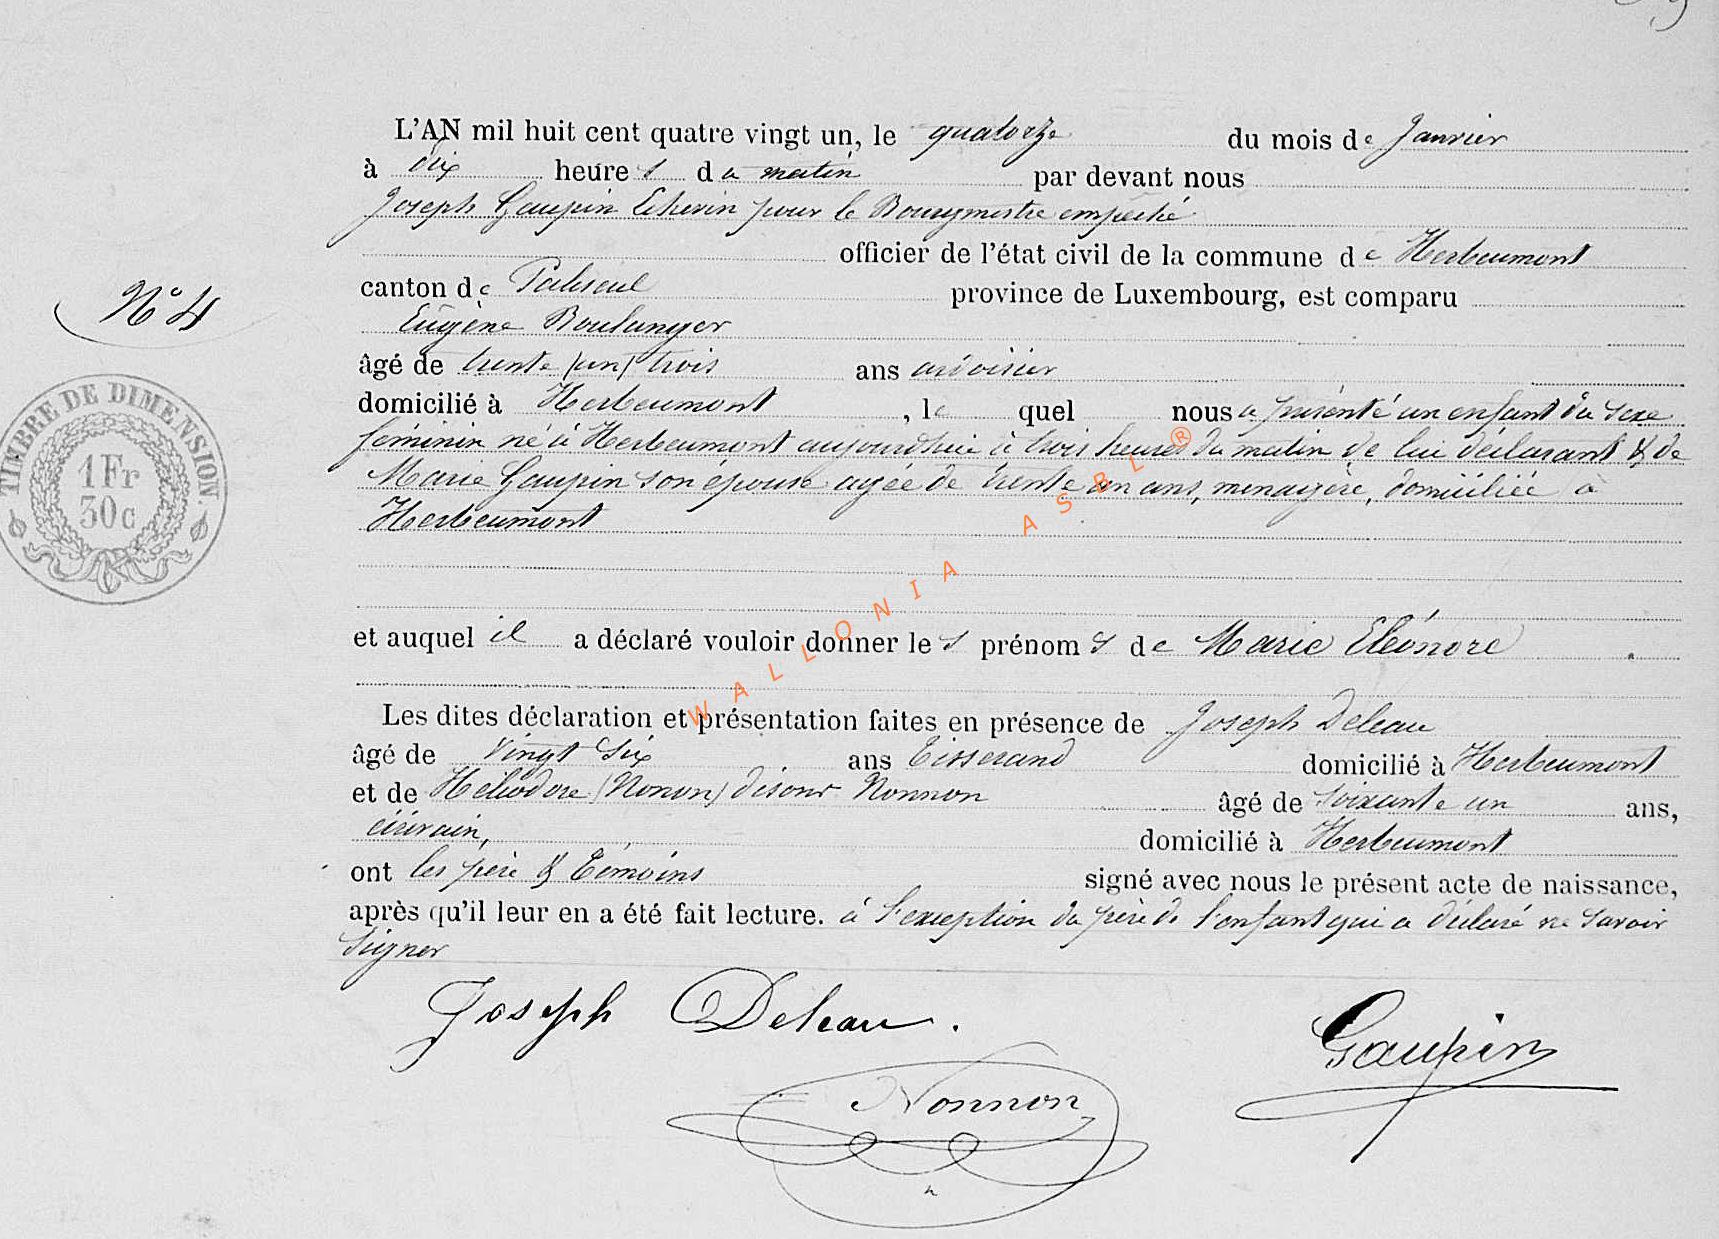 L'AN mil huit cent quatre vingt un, le quatorze du mois de Janvier
à dix heures du matin par devant nous
Joseph Gaupin Echevin pour le Bourgmestre empêché
officier de l'état civil de la commune de Herbeumont
canton de Paliseul province de Luxembourg, est comparu
N° 4
Eugène Boulanger
âgé de trente (un) trois ans ardoisier
domicilié à Herbeumont, lequel nous a présenté un enfant du sexe
féminin né à Herbeumont aujourdhui à trois heures du matin de lui déclarant & de
Marie Gaupin son épouse agée de trente un ans, menagère, domiciliée à
Herbeumont
TIMBRE DE DIMENSION.
1 Fr
30 c
et auquel il a déclaré vouloir donner les prénoms de Marie Eléonore
Les dites déclaration et présentation faites en présence de Joseph Deleau
âgé de Vingt Six ans Tisserand domicilié à Herbeumont
et de Héliodore (Nonon) disons Nonnon âgé de Soixante un ans,
écrivain, domicilié à Herbeumont
ont les père & Témoins signé avec nous le présent acte de naissance,
après qu'il leur en a été fait lecture. à l'exception du père de l'enfant qui a déclaré ne savoir
Signer
Joseph Deleau.
Gaupin
Nonnon
WALLONIA ASBL ®